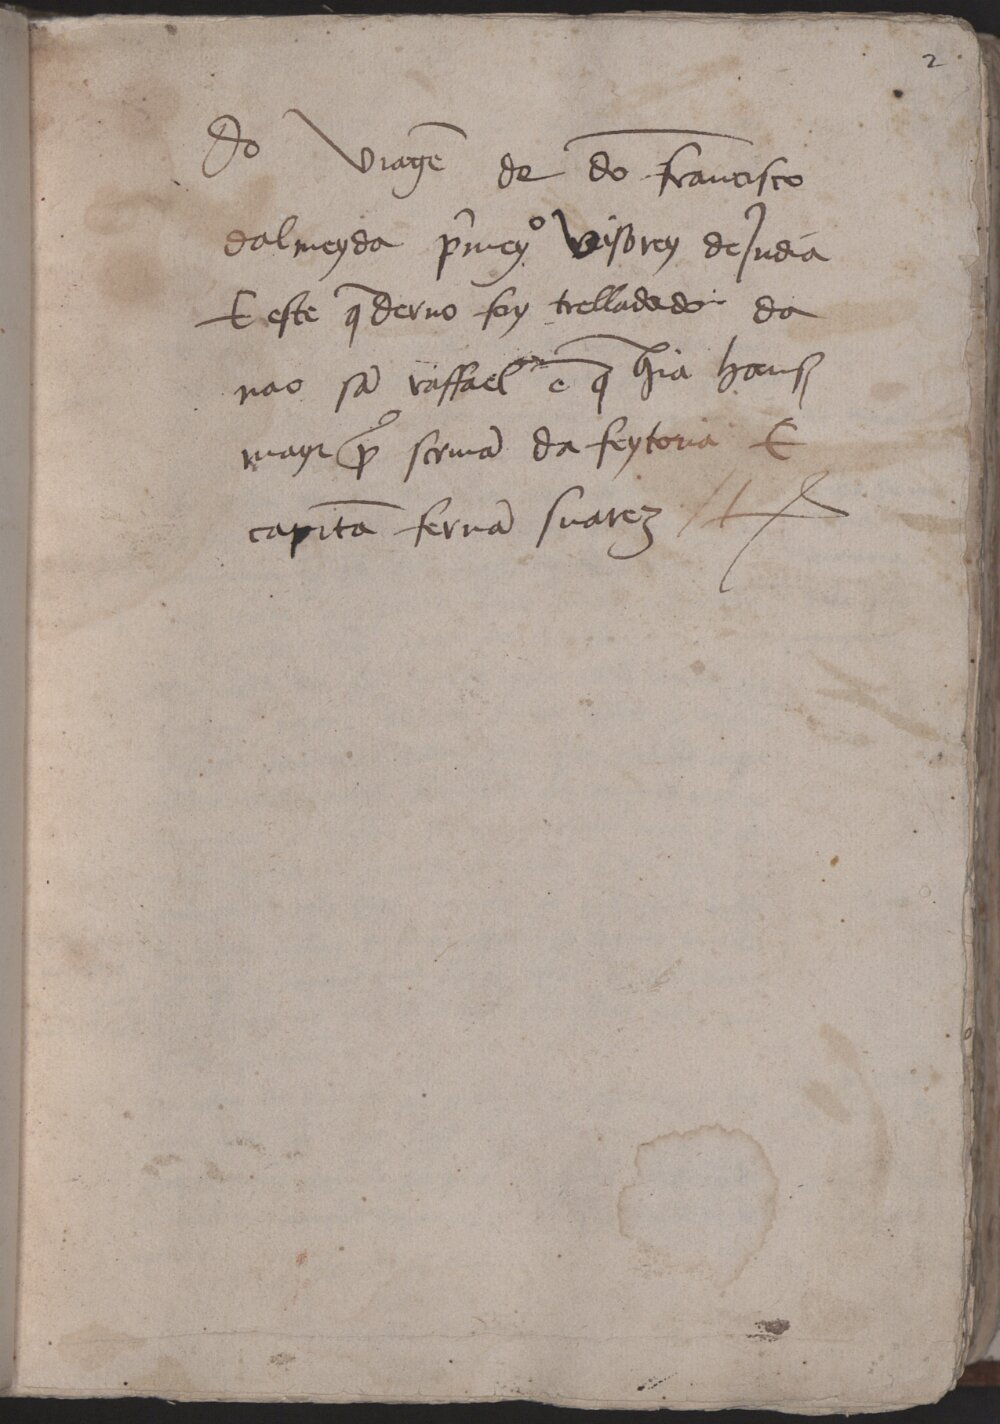 2
Do Viagē de dō francisco
dalmeyda p̄mey° visorey de Jndia
E este q̄derno foy trelladado da
nao sā raffael ē q̄ hia hanſ
mayr ꝓ scriuā da feytoria E
capitā fernā suarez